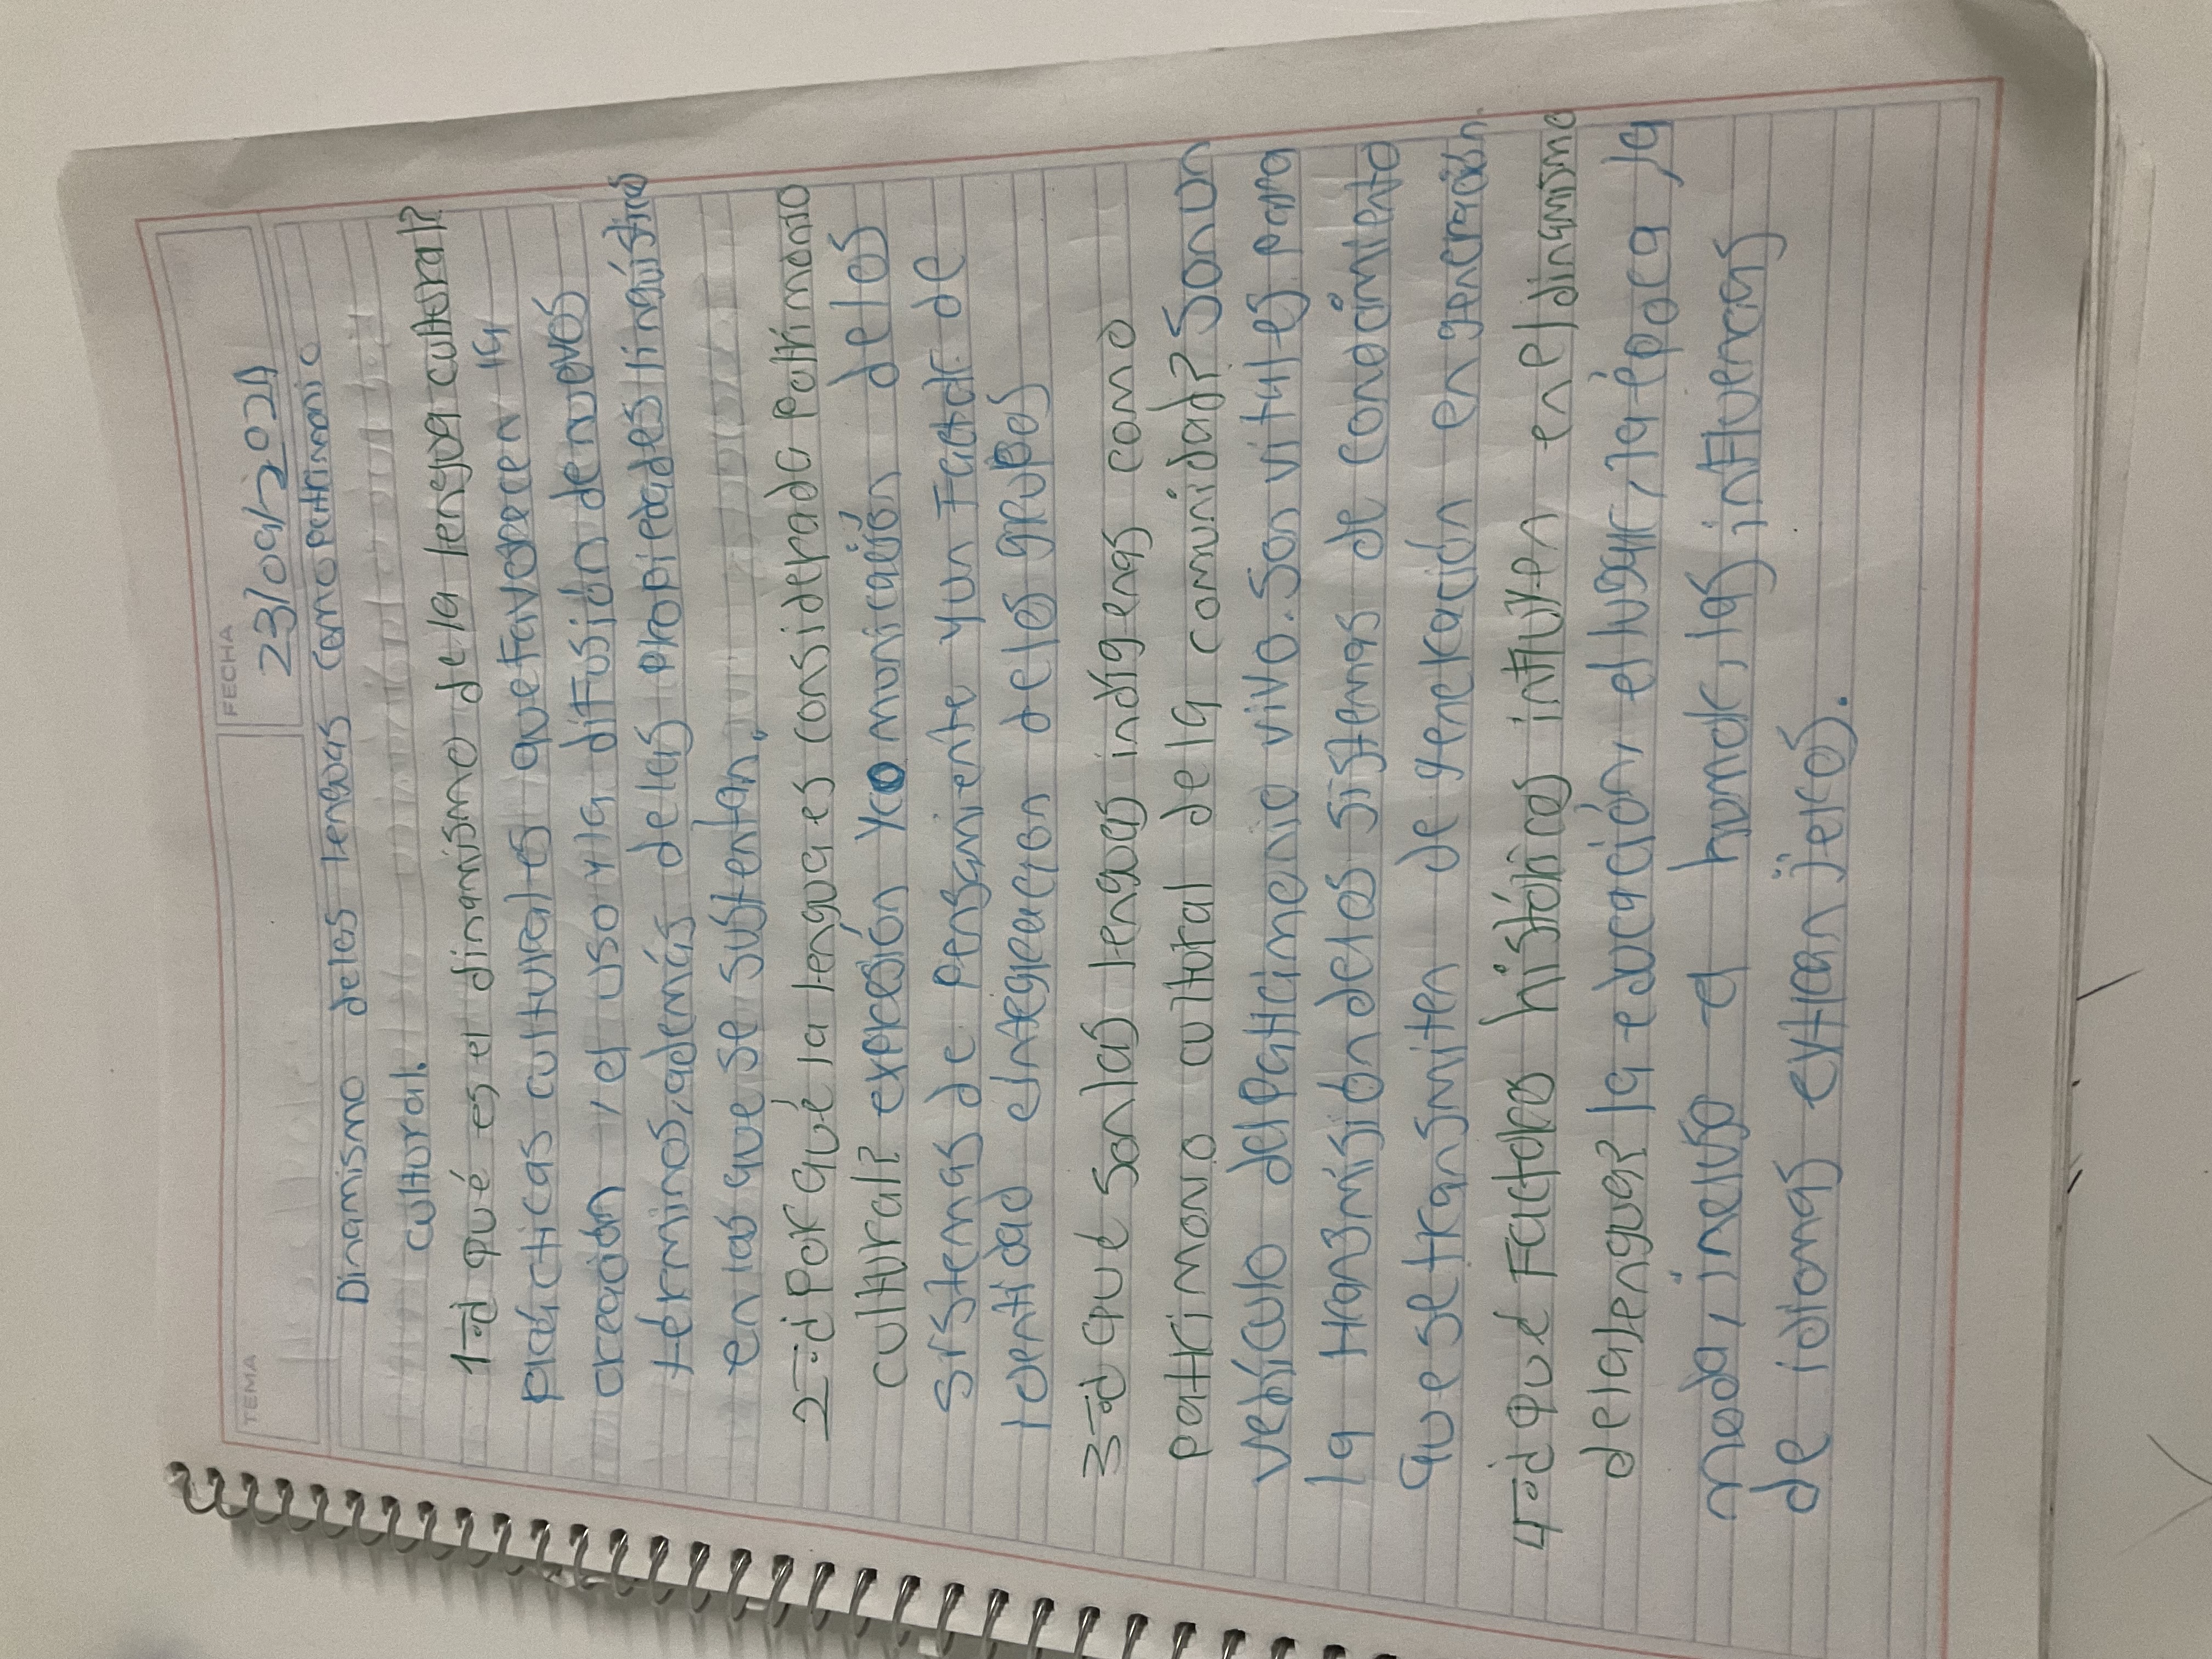 TEMA
FECHA
23/09/2024
Dinamismo de las lenguas como patrimonio
cultural.
1-¿ qué es el dinamismo de la lengua cultural?
prácticas culturales que favorecen la
creación, el uso y la difusión de nuevos
términos, además de las propiedades lingüísticas
en las que se sustentan.
2-¿Por qué la lengua es considerada Patrimonio
cultural? expresión y comunicación de los
sistemas de pensamiento y un Factor de
identidad e integración de los grupos
3-¿ que son las lenguas indígenas como
patrimonio cultural de la comunidad? Son un
vehículo del patrimonio vivo. Son vitales para
la transmisión de los sistemas de conocimiento
que se transmiten de generación en generación.
4-¿ qué Factores históricos influyen en el dinamismo
de la lengua? la educación, el lugar, la época, la
moda, incluso el humor, las influencias
de idiomas extranjeros.